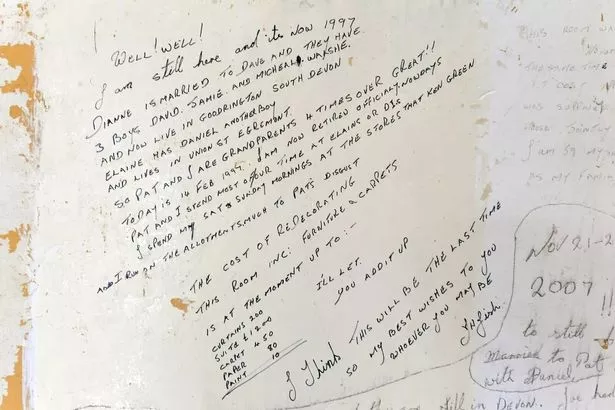 WELL! WELL!
I am still here and its now 1997
DIANNE IS MARRIED TO DAVE AND THEY HAVE
3 BOYS, DAVID. JAMIE. AND MICHEAL.
AND NOW LIVE IN GOODRINGTON SOUTH DEVON
ELAINE HAS DANIEL ANOTHER BOY
AND LIVES IN UNION ST EGREMONT.
SO PAT AND I ARE GRANDPARENTS 4 TIMES OVER GREAT!!
TODAY IS 14 FEB 1997. I AM NOW RETIRED OFFICIALY, NOWDAYS
PAT AND I SPEND MOST OF OUR TIME AT ELAINS OR DIS
I SPEND MY SAT & SUNDAY MORNINGS AT THE STORES THAT KEN GREEN
AND I RUN ON THE ALLOTMENTS. MUCH TO PATS DISGUST
THE COST OF REDECORATING
THIS ROOM INC: FURNITURE & CARPETS
IS AT THE MOMENT UP TO:-
CURTAINS 200
SUITE £1200
CARPET 450
PAPER 80
PAINT 10
I'LL LET.
YOU ADD IT UP
I Think THIS WILL BE THE LAST TIME
SO MY BEST WISHES TO YOU
WHOEVER YOU MAY BE
THIS ROOM WA
THE SAME TIME
IT COST
WAS
I am 59 my
AS MY FAMI
NOV 21-2
2007 !!
to still
Married to
with Daniel, Pat
still in DEVON. I've han